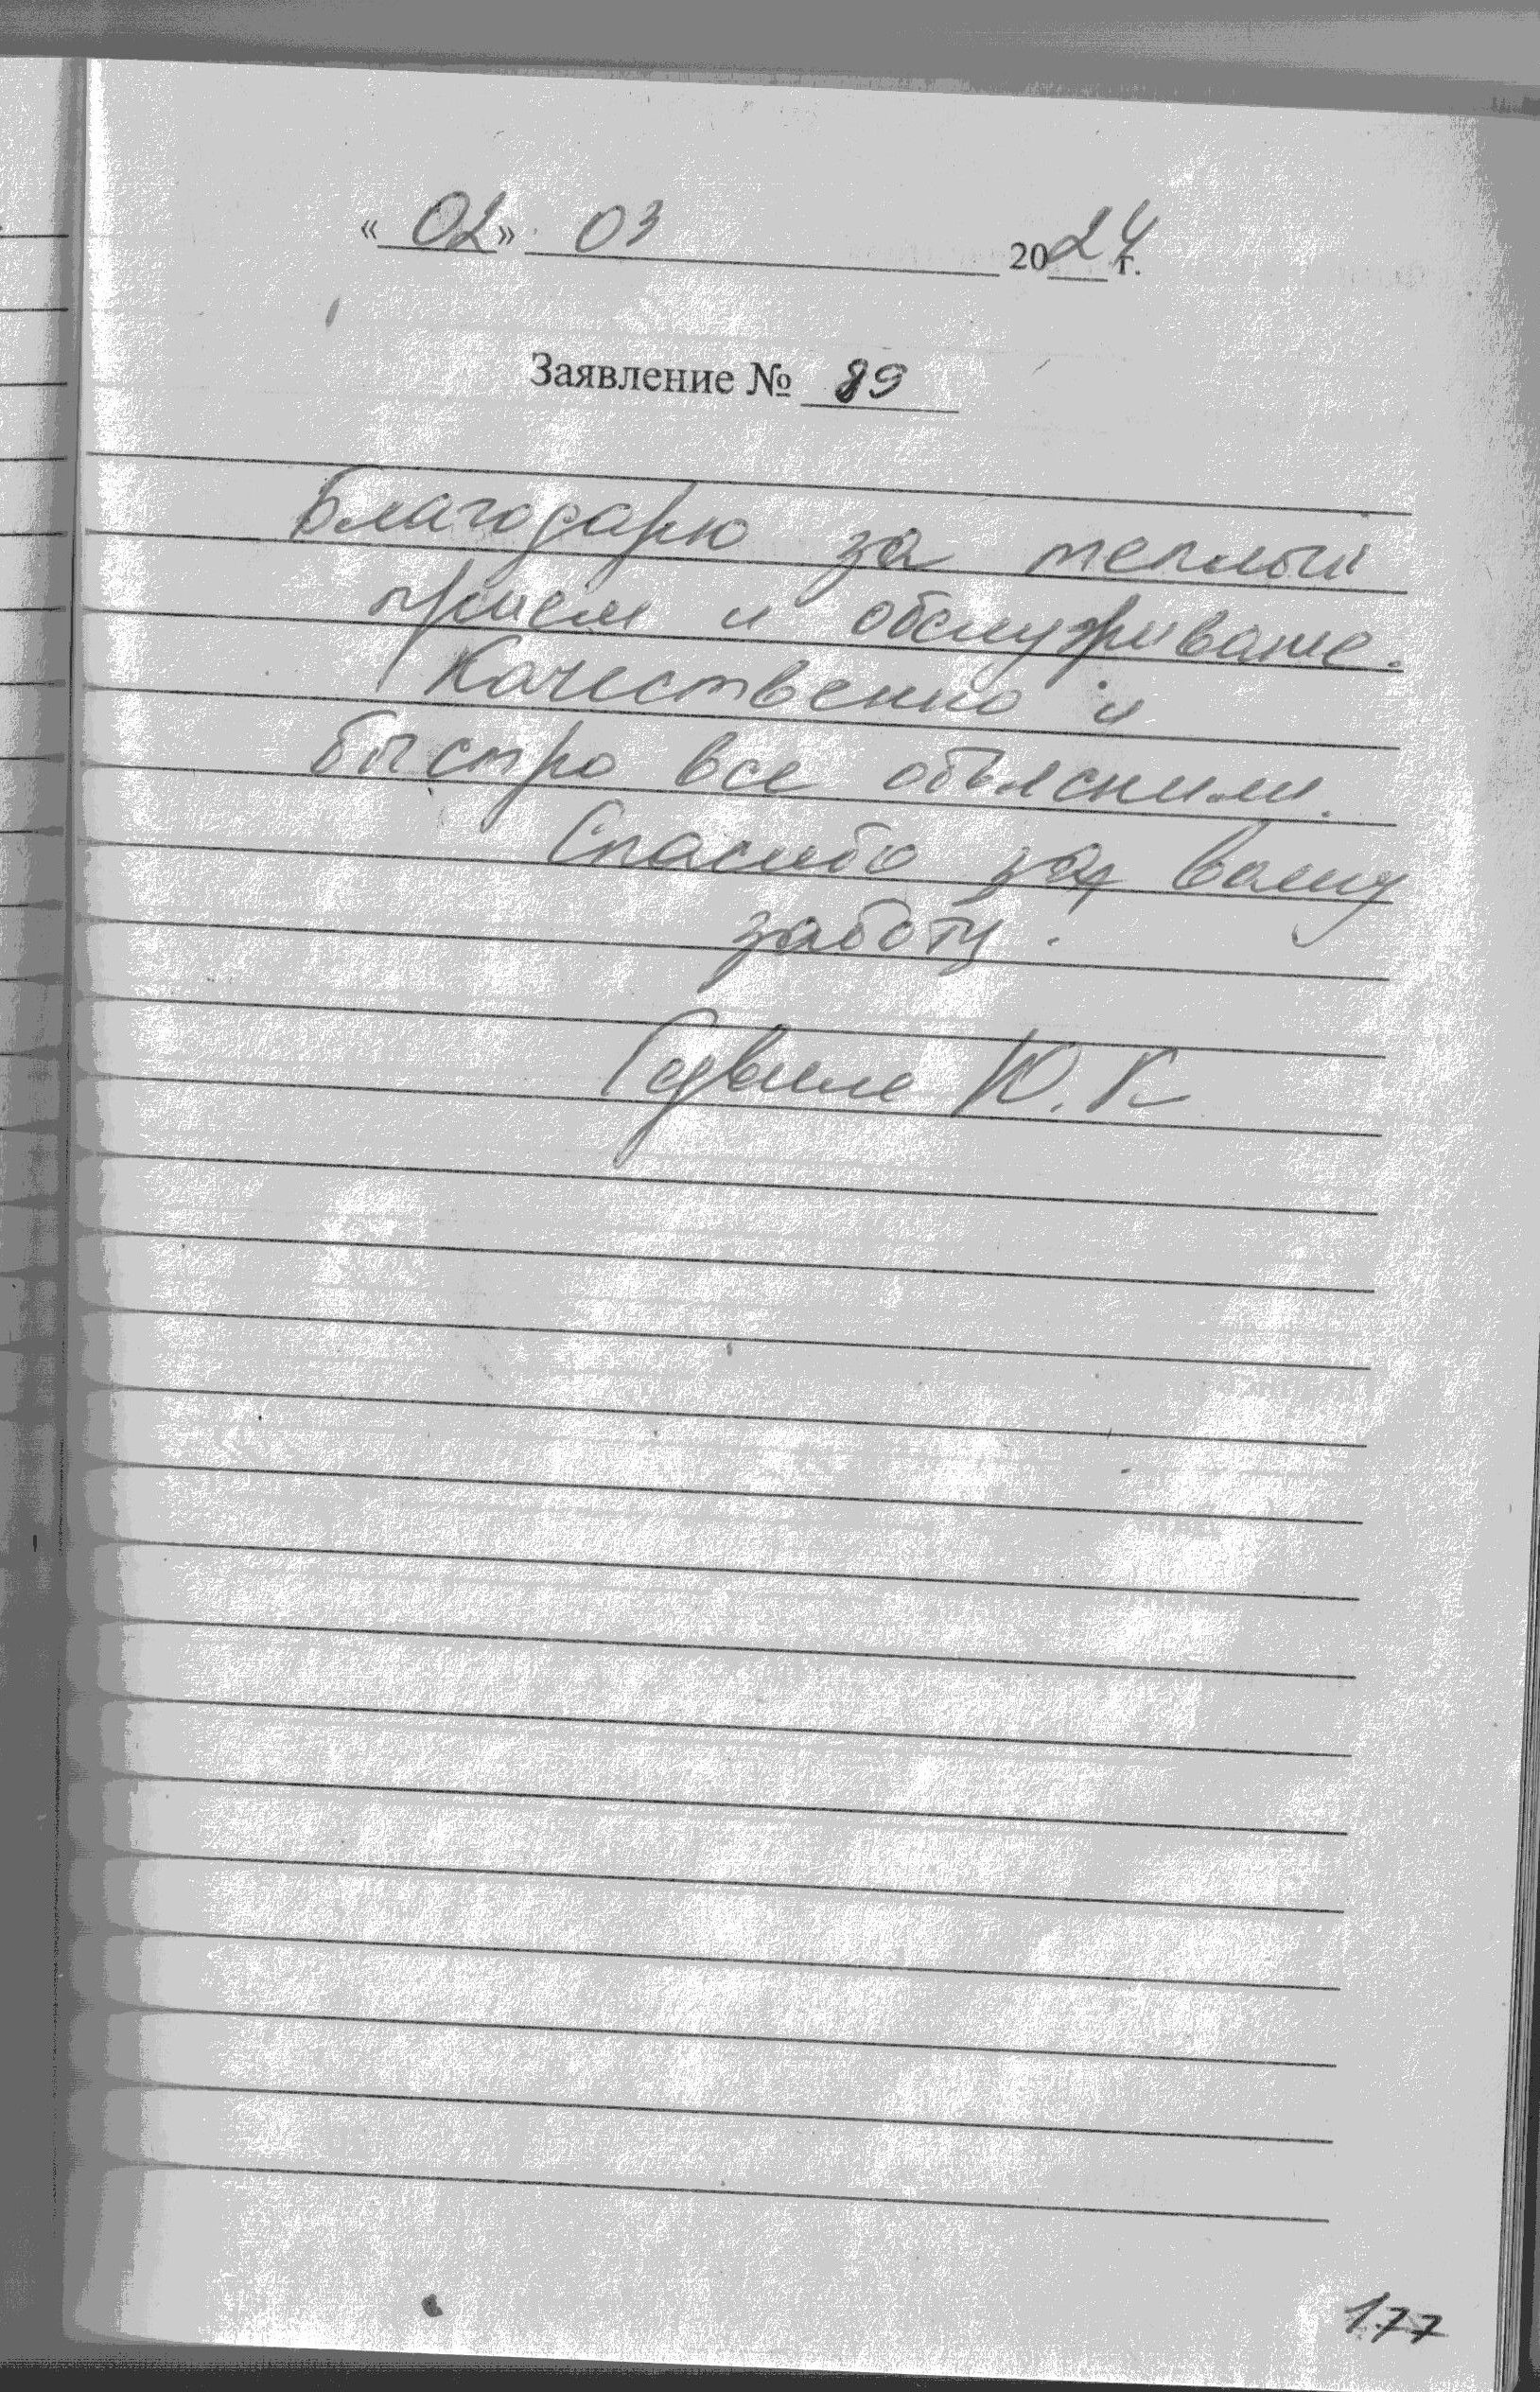 « 02 » 03 2024 г.
Заявление № 89
Благодарю за теплый
прием и обслуживание.
Качественно и
быстро все объяснили.
Спасибо за вашу
заботу.
Ю. К
177